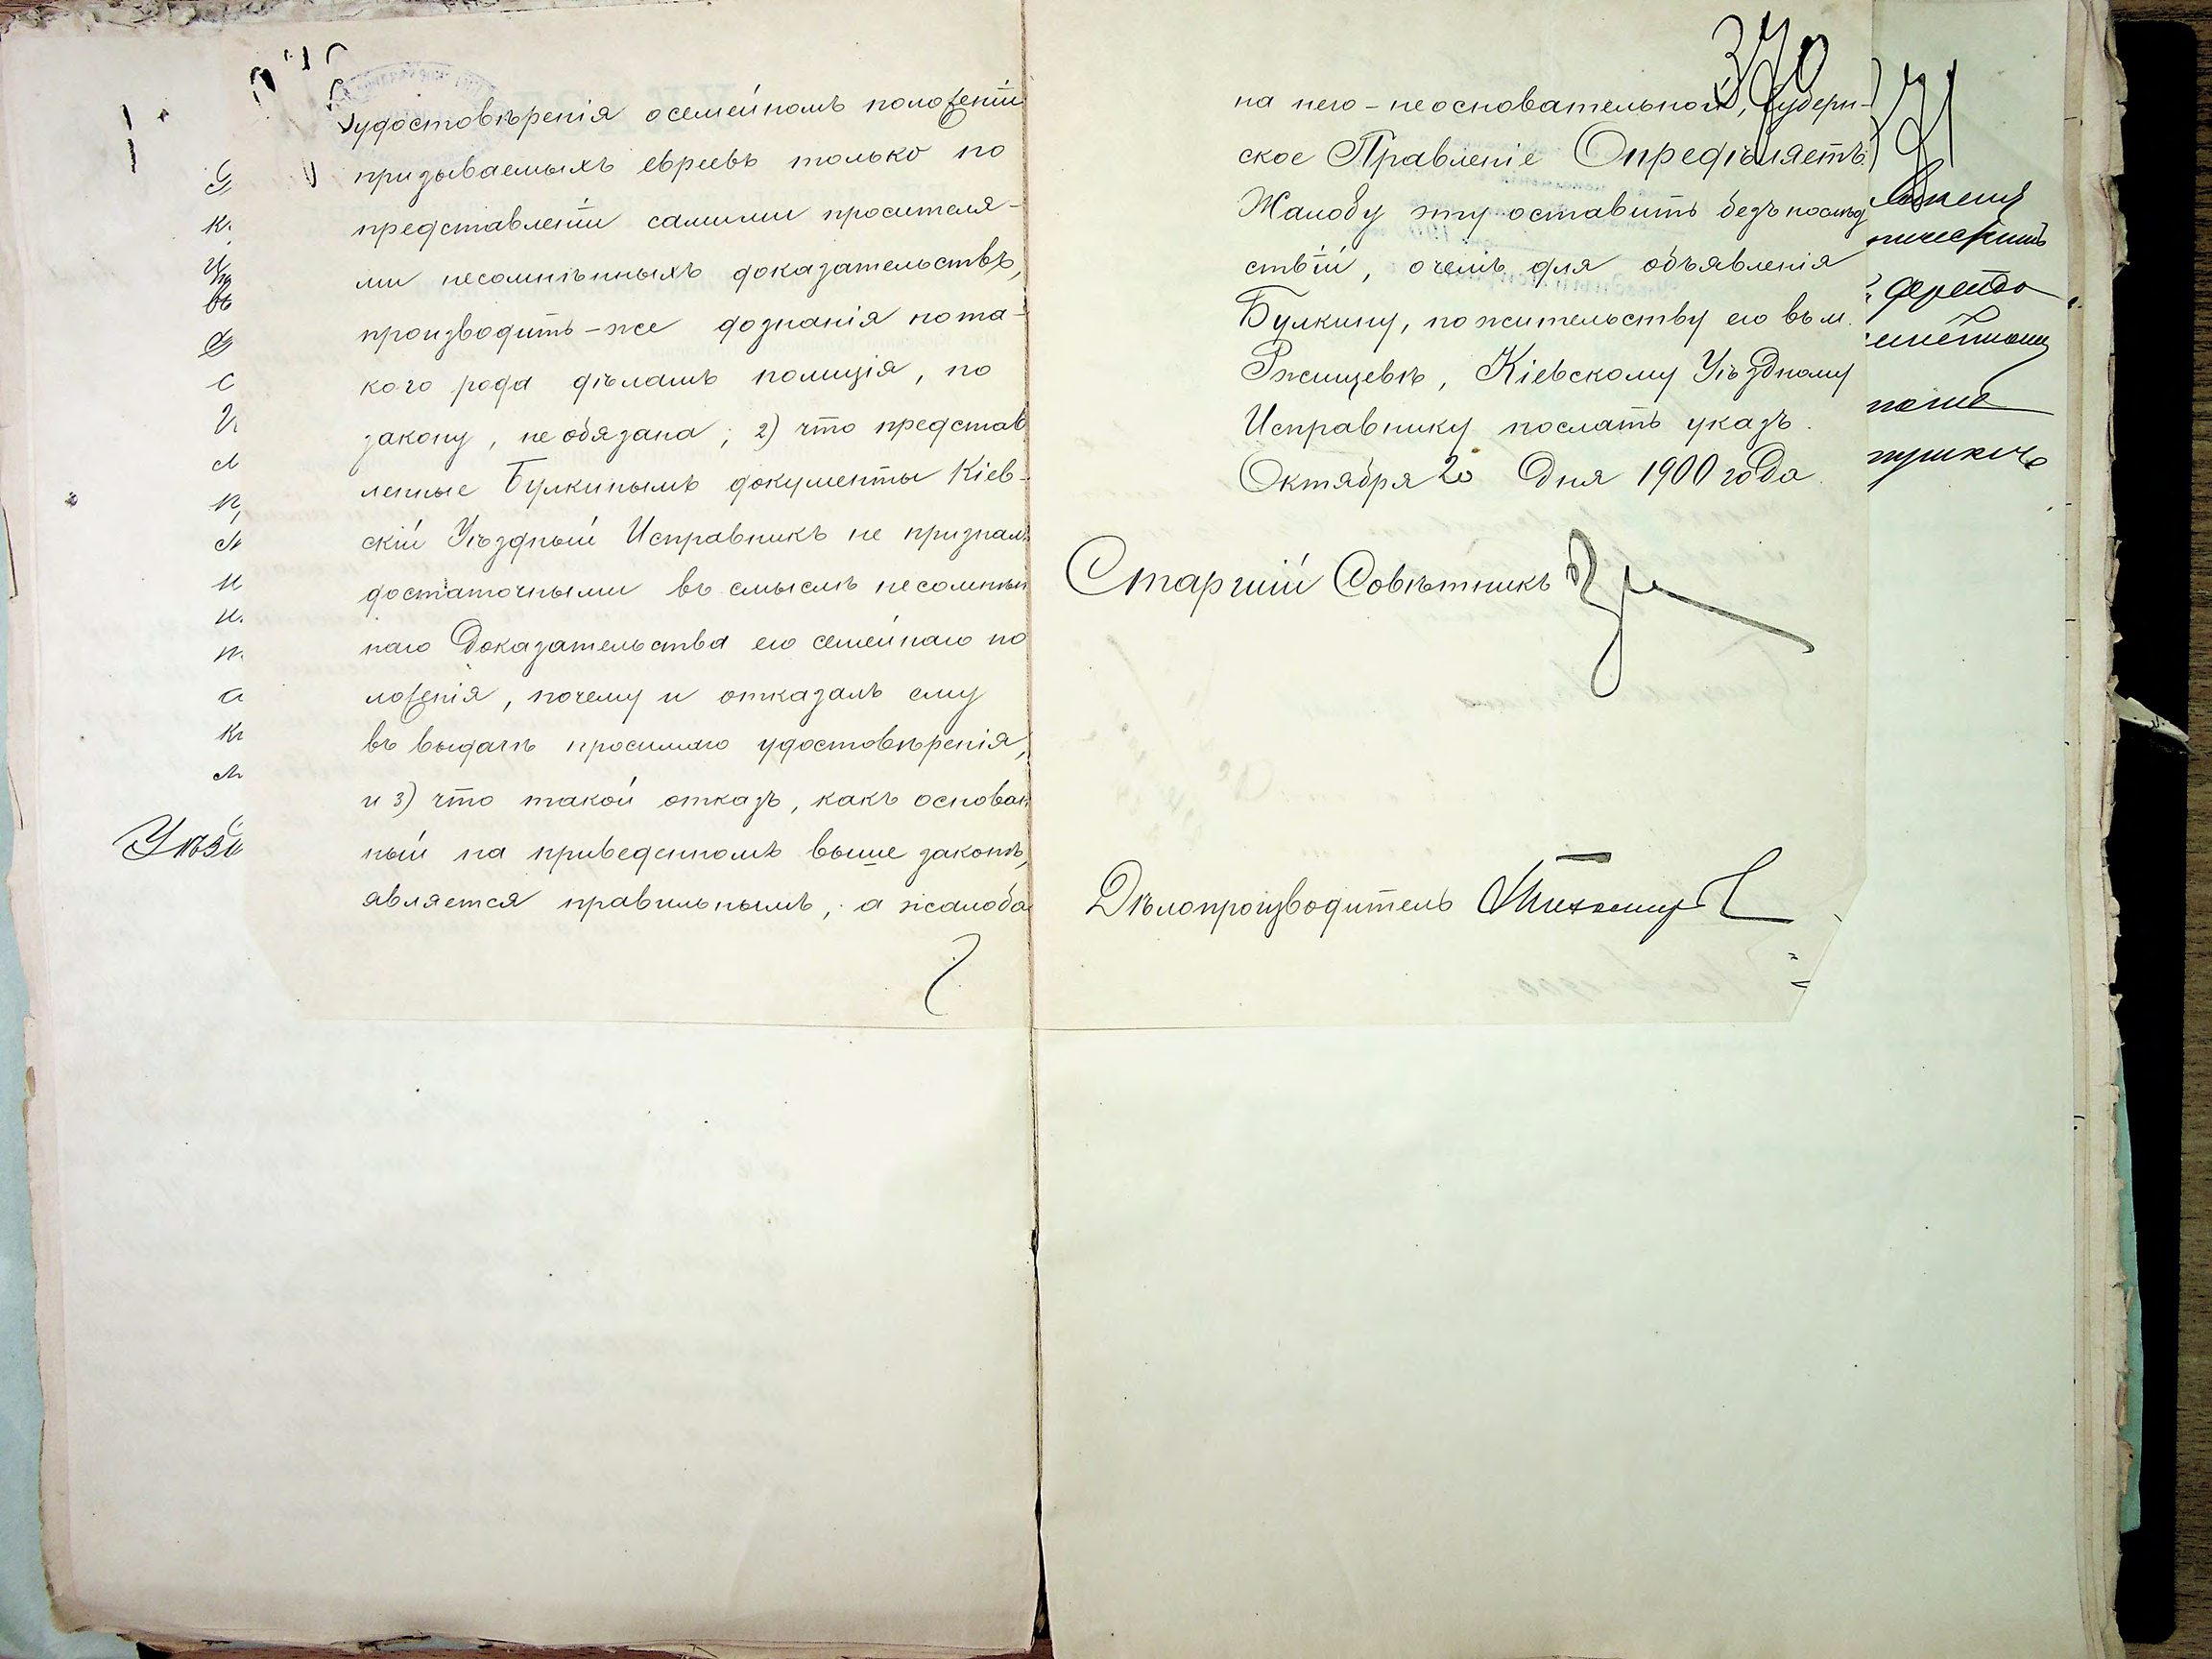 удостовѣренія о семейномъ положеніи
призываемыхъ евреевъ только по
представленіи самими просителя-
ми несомнѣнныхъ доказательствъ,
производить-же дознанія по та-
кого рода дѣламъ полиція, по
закону, не обязана; 2) что представ
ленные Булкинымъ документы Кіев-
скій Уѣздный Исправникъ не призналъ
достаточными въ смыслѣ несомнѣн
наго доказательства его семейнаго по
ложенія, почему и отказалъ ему
въ выдачѣ просимаго удостовѣренія,
и 3) что такой отказъ, какъ основан
ный на приведенномъ выше законѣ,
является правильнымъ, а жалоба
370
на него - неосновательной, Губерн-
ское Правленіе Опредѣляетъ:
Жалобу эту оставить безъ послѣд
ствій, о чемъ для объявленія
Булкину, по жительству его въ м.
Ржищевѣ, Кіевскому Уѣздному
Исправнику послать указъ.
Октября 20 дня 1900 года.
Старшій Совѣтникъ
Дѣлопроизводитель
71